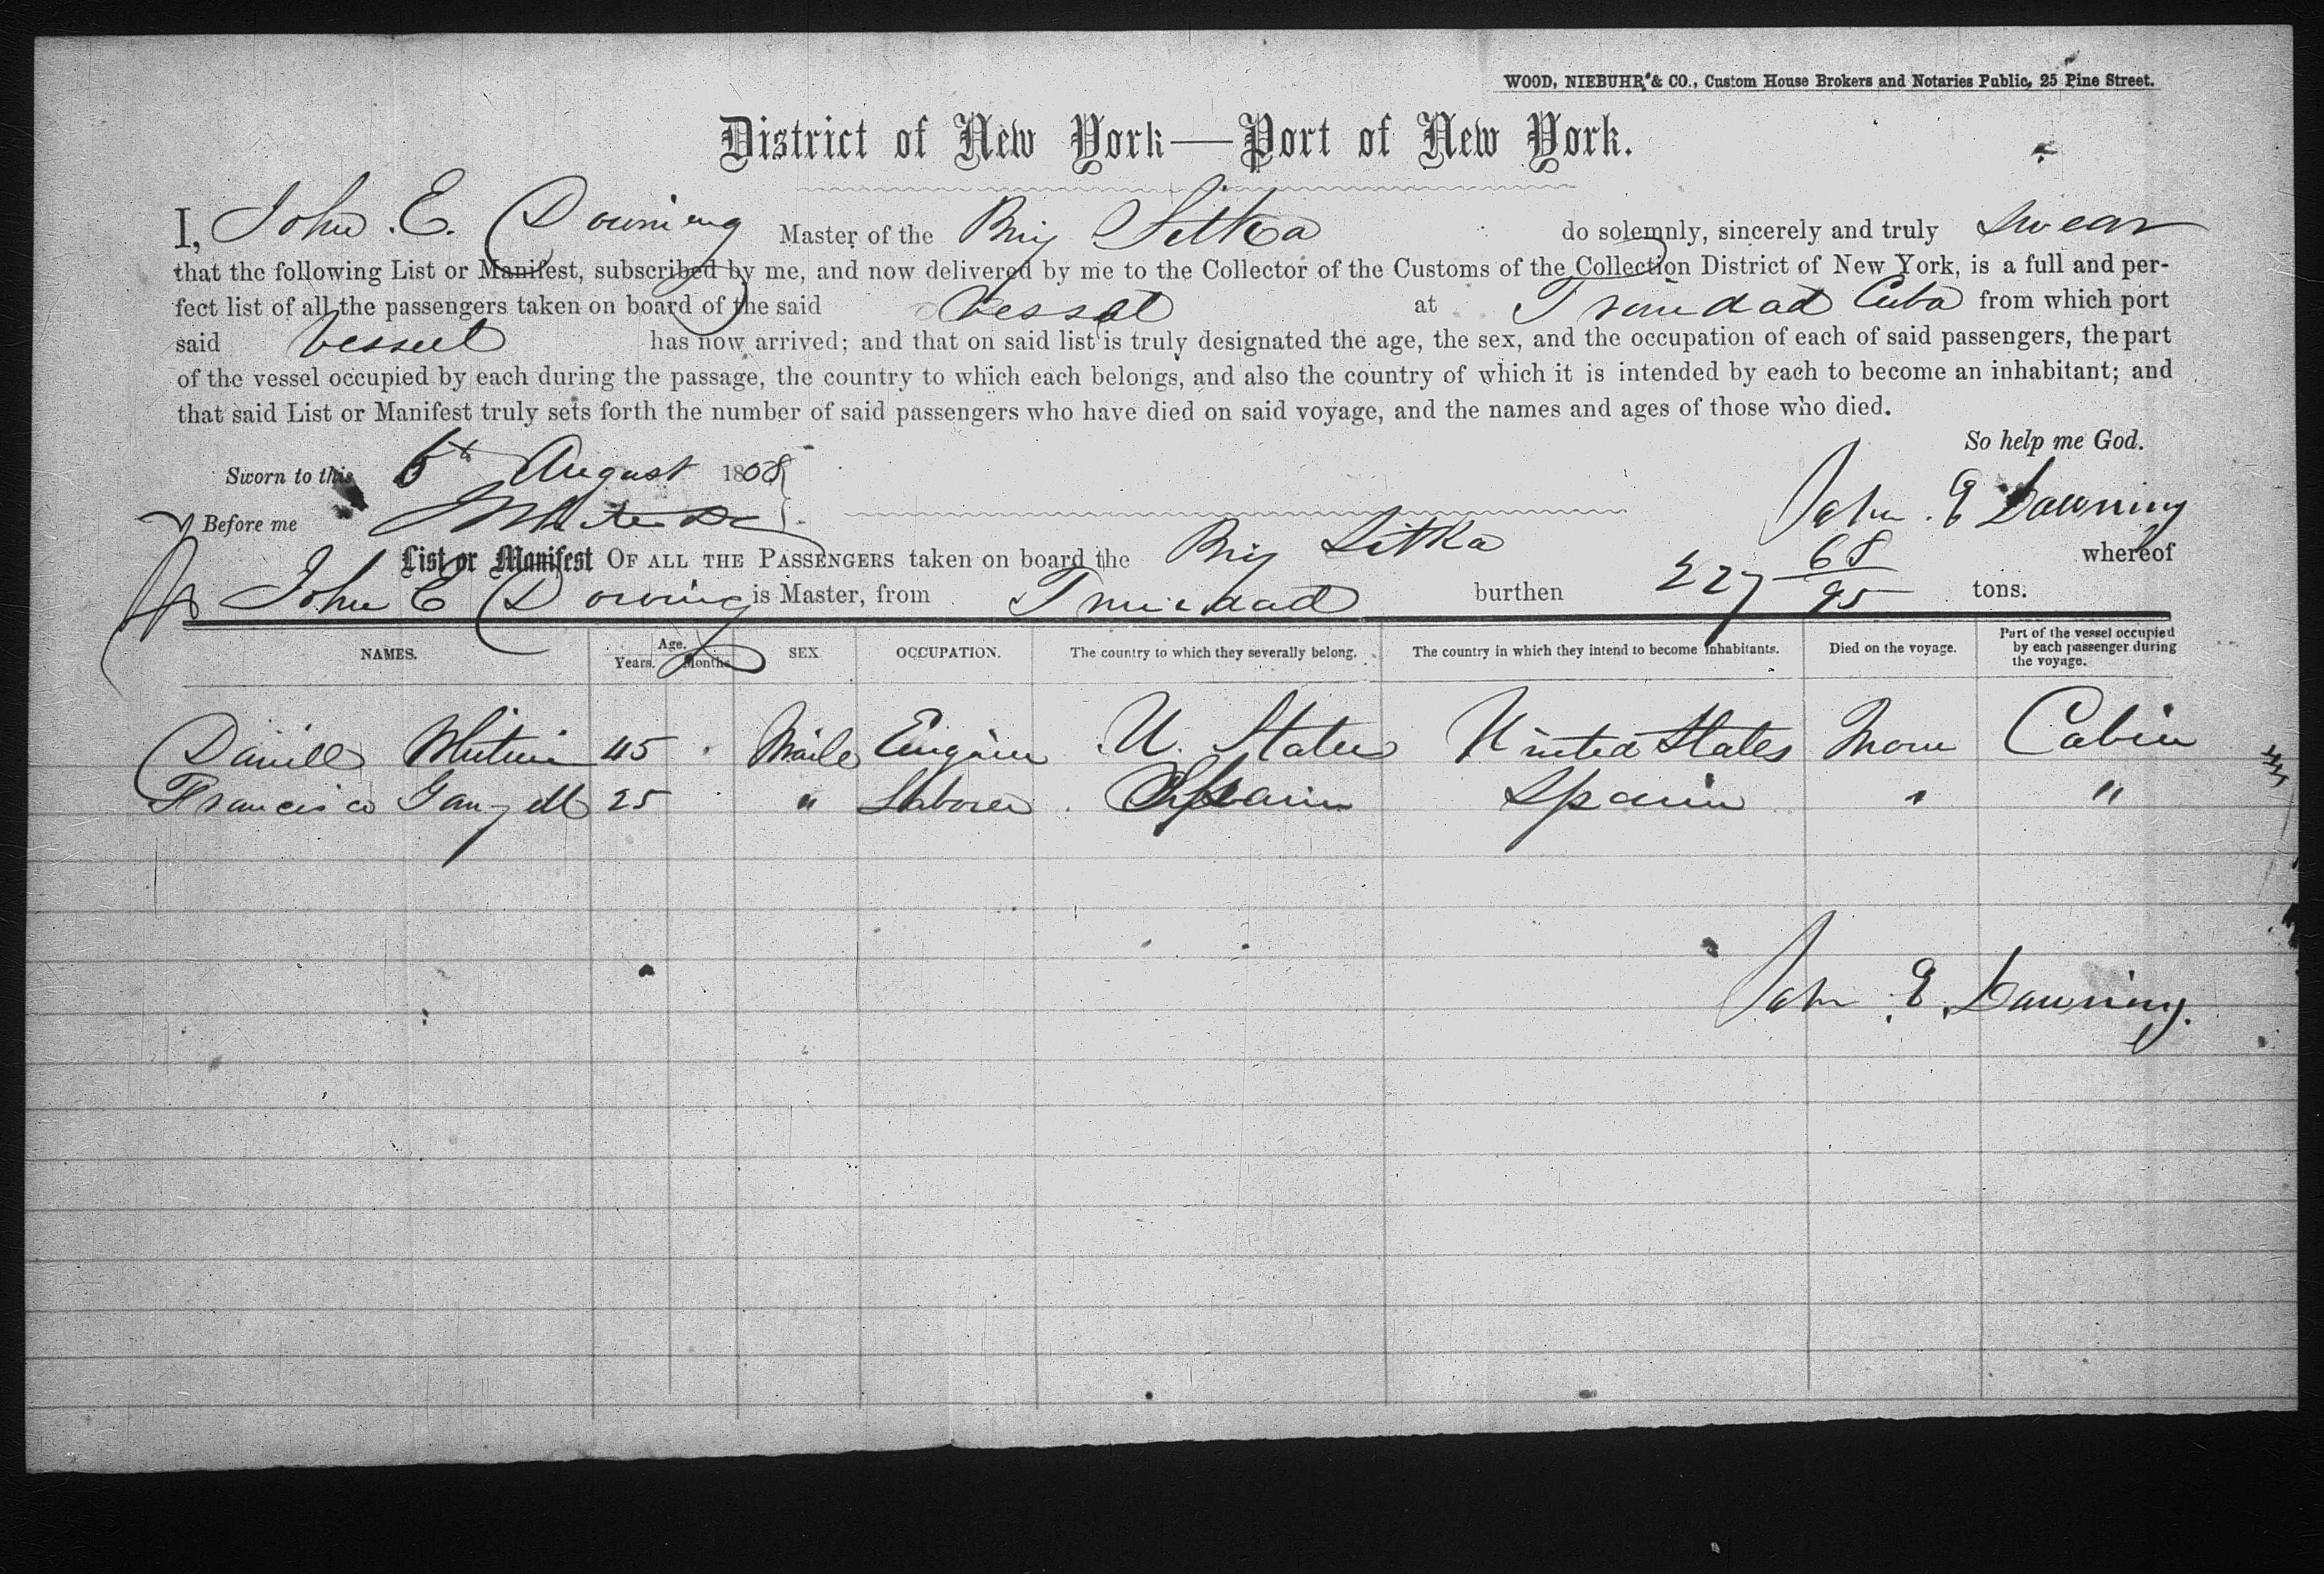 WOOD, NIEBUHR & CO., Custom House Brokers and Notaries Public, 25 Pine Street.
District of New York—Port of New York.
I, John E. Downing Master of the Brig Sitka do solemnly, sincerely and truly swear
that the following List or Manifest, subscribed by me, and now delivered by me to the Collector of the Customs of the Collection District of New York, is a full and per-
fect list of all the passengers taken on board of the said vessel at Trinidad Cuba from which port
said vessel has now arrived; and that on said list is truly designated the age, the sex, and the occupation of each of said passengers, the part
of the vessel occupied by each during the passage, the country to which each belongs, and also the country of which it is intended by each to become an inhabitant; and
that said List or Manifest truly sets forth the number of said passengers who have died on said voyage, and the names and ages of those who died.
So help me God.
Sworn to this August 18
Before me John E Downing
List or Manifest OF ALL THE PASSENGERS taken on board the Brig Sitka whereof
John E Downing is Master, from Trinidad burthen 227 68/95 tons.
NAMES. Age. Years. Months. SEX OCCUPATION. The country to which they severally belong. The country in which they intend to become inhabitants. Died on the voyage. Part of the vessel occupied by each passenger during the voyage.
Daniell 45 Male U. States United States None Cabin
Francisco 25 " Laborer Spain Spain " "
John E. Downing.